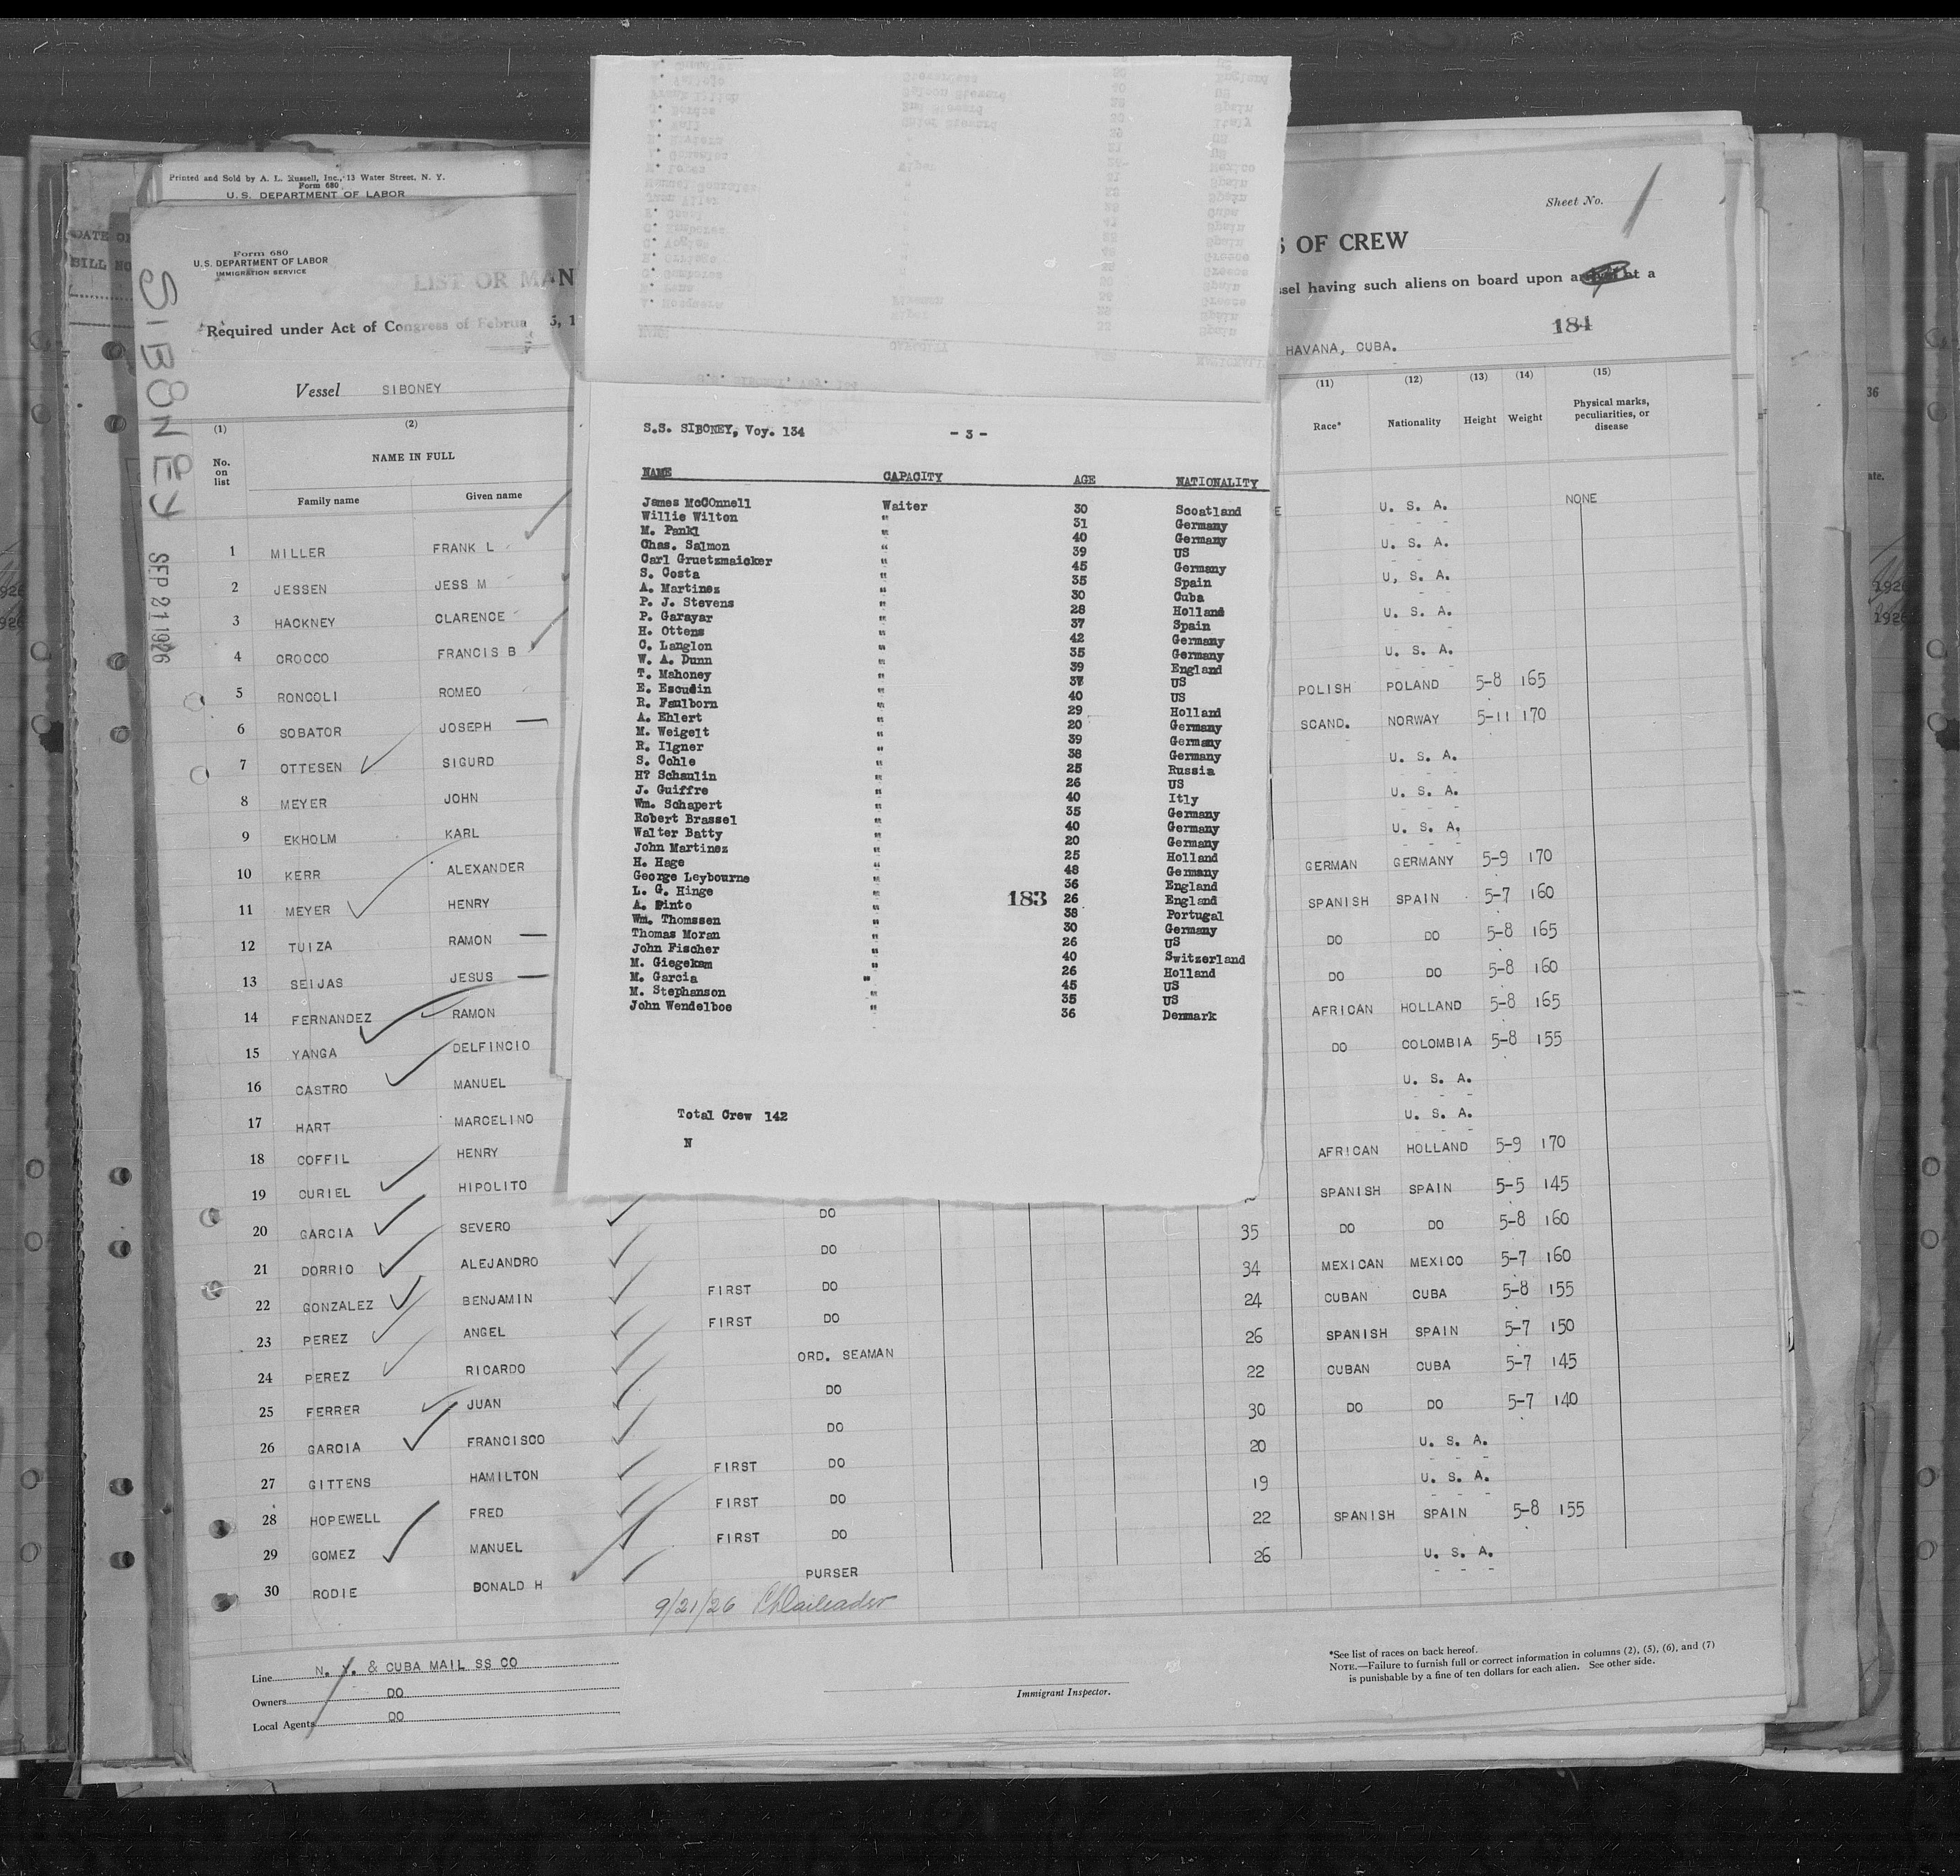 Printed and Sold by A. L. Russell, Inc., 13 Water Street, N. Y.
Form 680
U. S. DEPARTMENT OF LABOR
Form 680
U. S. DEPARTMENT OF LABOR
IMMIGRATION SERVICE
LIST OR MAN
S OF CREW
Sheet No. 1
Required under Act of Congress of Februa 5, 1
ssel having such aliens on board upon arrival at a
184
HAVANA, CUBA.
Vessel SIBONEY
SIBONEY SEP 21 1926
(1) (2) (11) (12) (13) (14) (15)
No. on list NAME IN FULL Race* Nationality Height Weight Physical marks, peculiarities, or disease
Family name Given name
S.S. SIBONEY, Voy. 134 - 3 -
NAME CAPACITY AGE NATIONALITY
James McCOnnell Waiter 30 Scoatland
Willie Wilton " 31 Germany
M. Pankl " 40 Germany
Chas. Salmon " 39 US
Carl Gruetzmaicker " 45 Germany
S. Costa " 35 Spain
A. Martinez " 30 Cuba
P. J. Stevens " 28 Holland
P. Garayar " 37 Spain
H. Ottens " 42 Germany
C. Langlon " 35 Germany
W. A. Dunn " 39 England
T. Mahoney " 37 US
E. Escudin " 40 US
R. Faulborn " 29 Holland
A. Ehlert " 20 Germany
M. Weigelt " 39 Germany
R. Ilgner " 38 Germany
S. Cohle " 25 Russia
H? Schaulin " 26 US
J. Guiffre " 40 Itly
Wm. Schapert " 35 Germany
Robert Brassel " 40 Germany
Walter Batty " 20 Germany
John Martinez " 25 Holland
H. Hage " 48 Germany
George Leybourne " 36 England
L. G. Hinge " 26 England
A. Pinto " 38 Portugal
Wm. Thomssen " 30 Germany
Thomas Moran " 26 US
John Fischer " 40 Switzerland
M. Giegekam " 26 Holland
M. Garcia " 45 US
M. Stephanson " 35 US
John Wendelboe " 36 Denmark
183
Total Crew 142
N
1 MILLER FRANK L U. S. A. NONE
2 JESSEN JESS M U. S. A.
3 HACKNEY CLARENCE U, S. A.
4 OROCCO FRANCIS B U. S. A.
5 RONCOLI ROMEO U. S. A.
6 SOBATOR JOSEPH POLISH POLAND 5-8 165
7 OTTESEN SIGURD SCAND. NORWAY 5-11 170
8 MEYER JOHN U. S. A.
9 EKHOLM KARL U. S. A.
10 KERR ALEXANDER U. S. A.
11 MEYER HENRY GERMAN GERMANY 5-9 170
12 TUIZA RAMON SPANISH SPAIN 5-7 160
13 SEIJAS JESUS DO DO 5-8 165
14 FERNANDEZ RAMON DO DO 5-8 160
15 YANGA DELFINCIO AFRICAN HOLLAND 5-8 165
16 CASTRO MANUEL DO COLOMBIA 5-8 155
17 HART MARCELINO U. S. A.
18 COFFIL HENRY U. S. A.
19 CURIEL HIPOLITO AFRICAN HOLLAND 5-9 170
20 GARCIA SEVERO DO SPANISH SPAIN 5-5 145
21 DORRIO ALEJANDRO DO 35 DO DO 5-8 160
22 GONZALEZ BENJAMIN FIRST DO 34 MEXICAN MEXICO 5-7 160
23 PEREZ ANGEL FIRST DO 24 CUBAN CUBA 5-8 155
24 PEREZ RICARDO ORD. SEAMAN 26 SPANISH SPAIN 5-7 150
25 FERRER JUAN DO 22 CUBAN CUBA 5-7 145
26 GARCIA FRANCISCO DO 30 DO DO 5-7 140
27 GITTENS HAMILTON FIRST DO 20 U. S. A.
28 HOPEWELL FRED FIRST DO 19 U. S. A.
29 GOMEZ MANUEL FIRST DO 22 SPANISH SPAIN 5-8 155
30 RODIE DONALD H PURSER 26 U. S. A.
9/21/26
Line N. Y. & CUBA MAIL SS CO
Owners DO
Local Agents DO
Immigrant Inspector.
*See list of races on back hereof.
NOTE.—Failure to furnish full or correct information in columns (2), (5), (6), and (7)
is punishable by a fine of ten dollars for each alien. See other side.